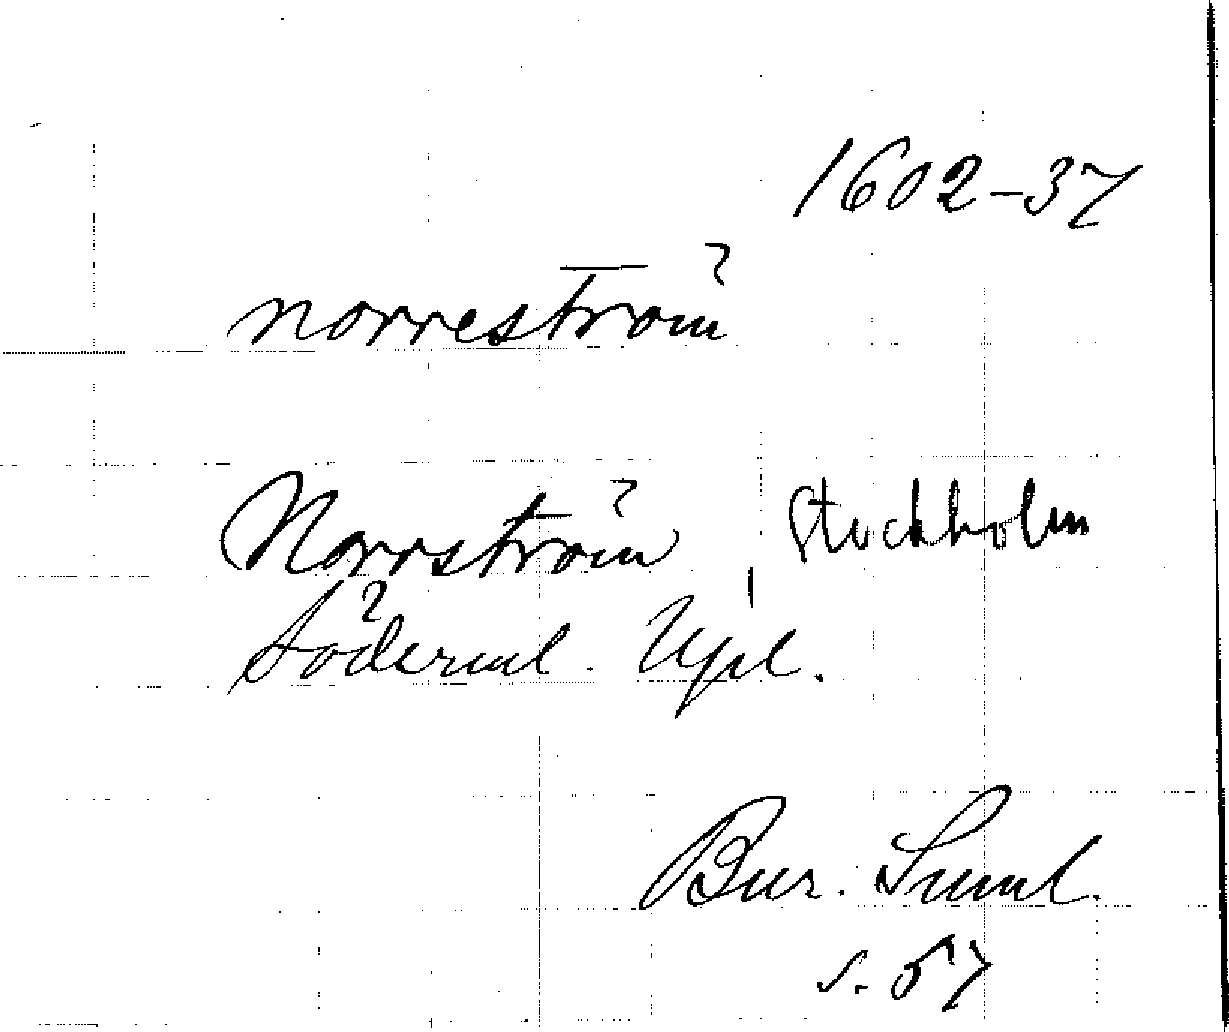 1602-37
norreström
Norrström, Stockholm
Söderml. Upl.
Bur. Suml.
s. 57